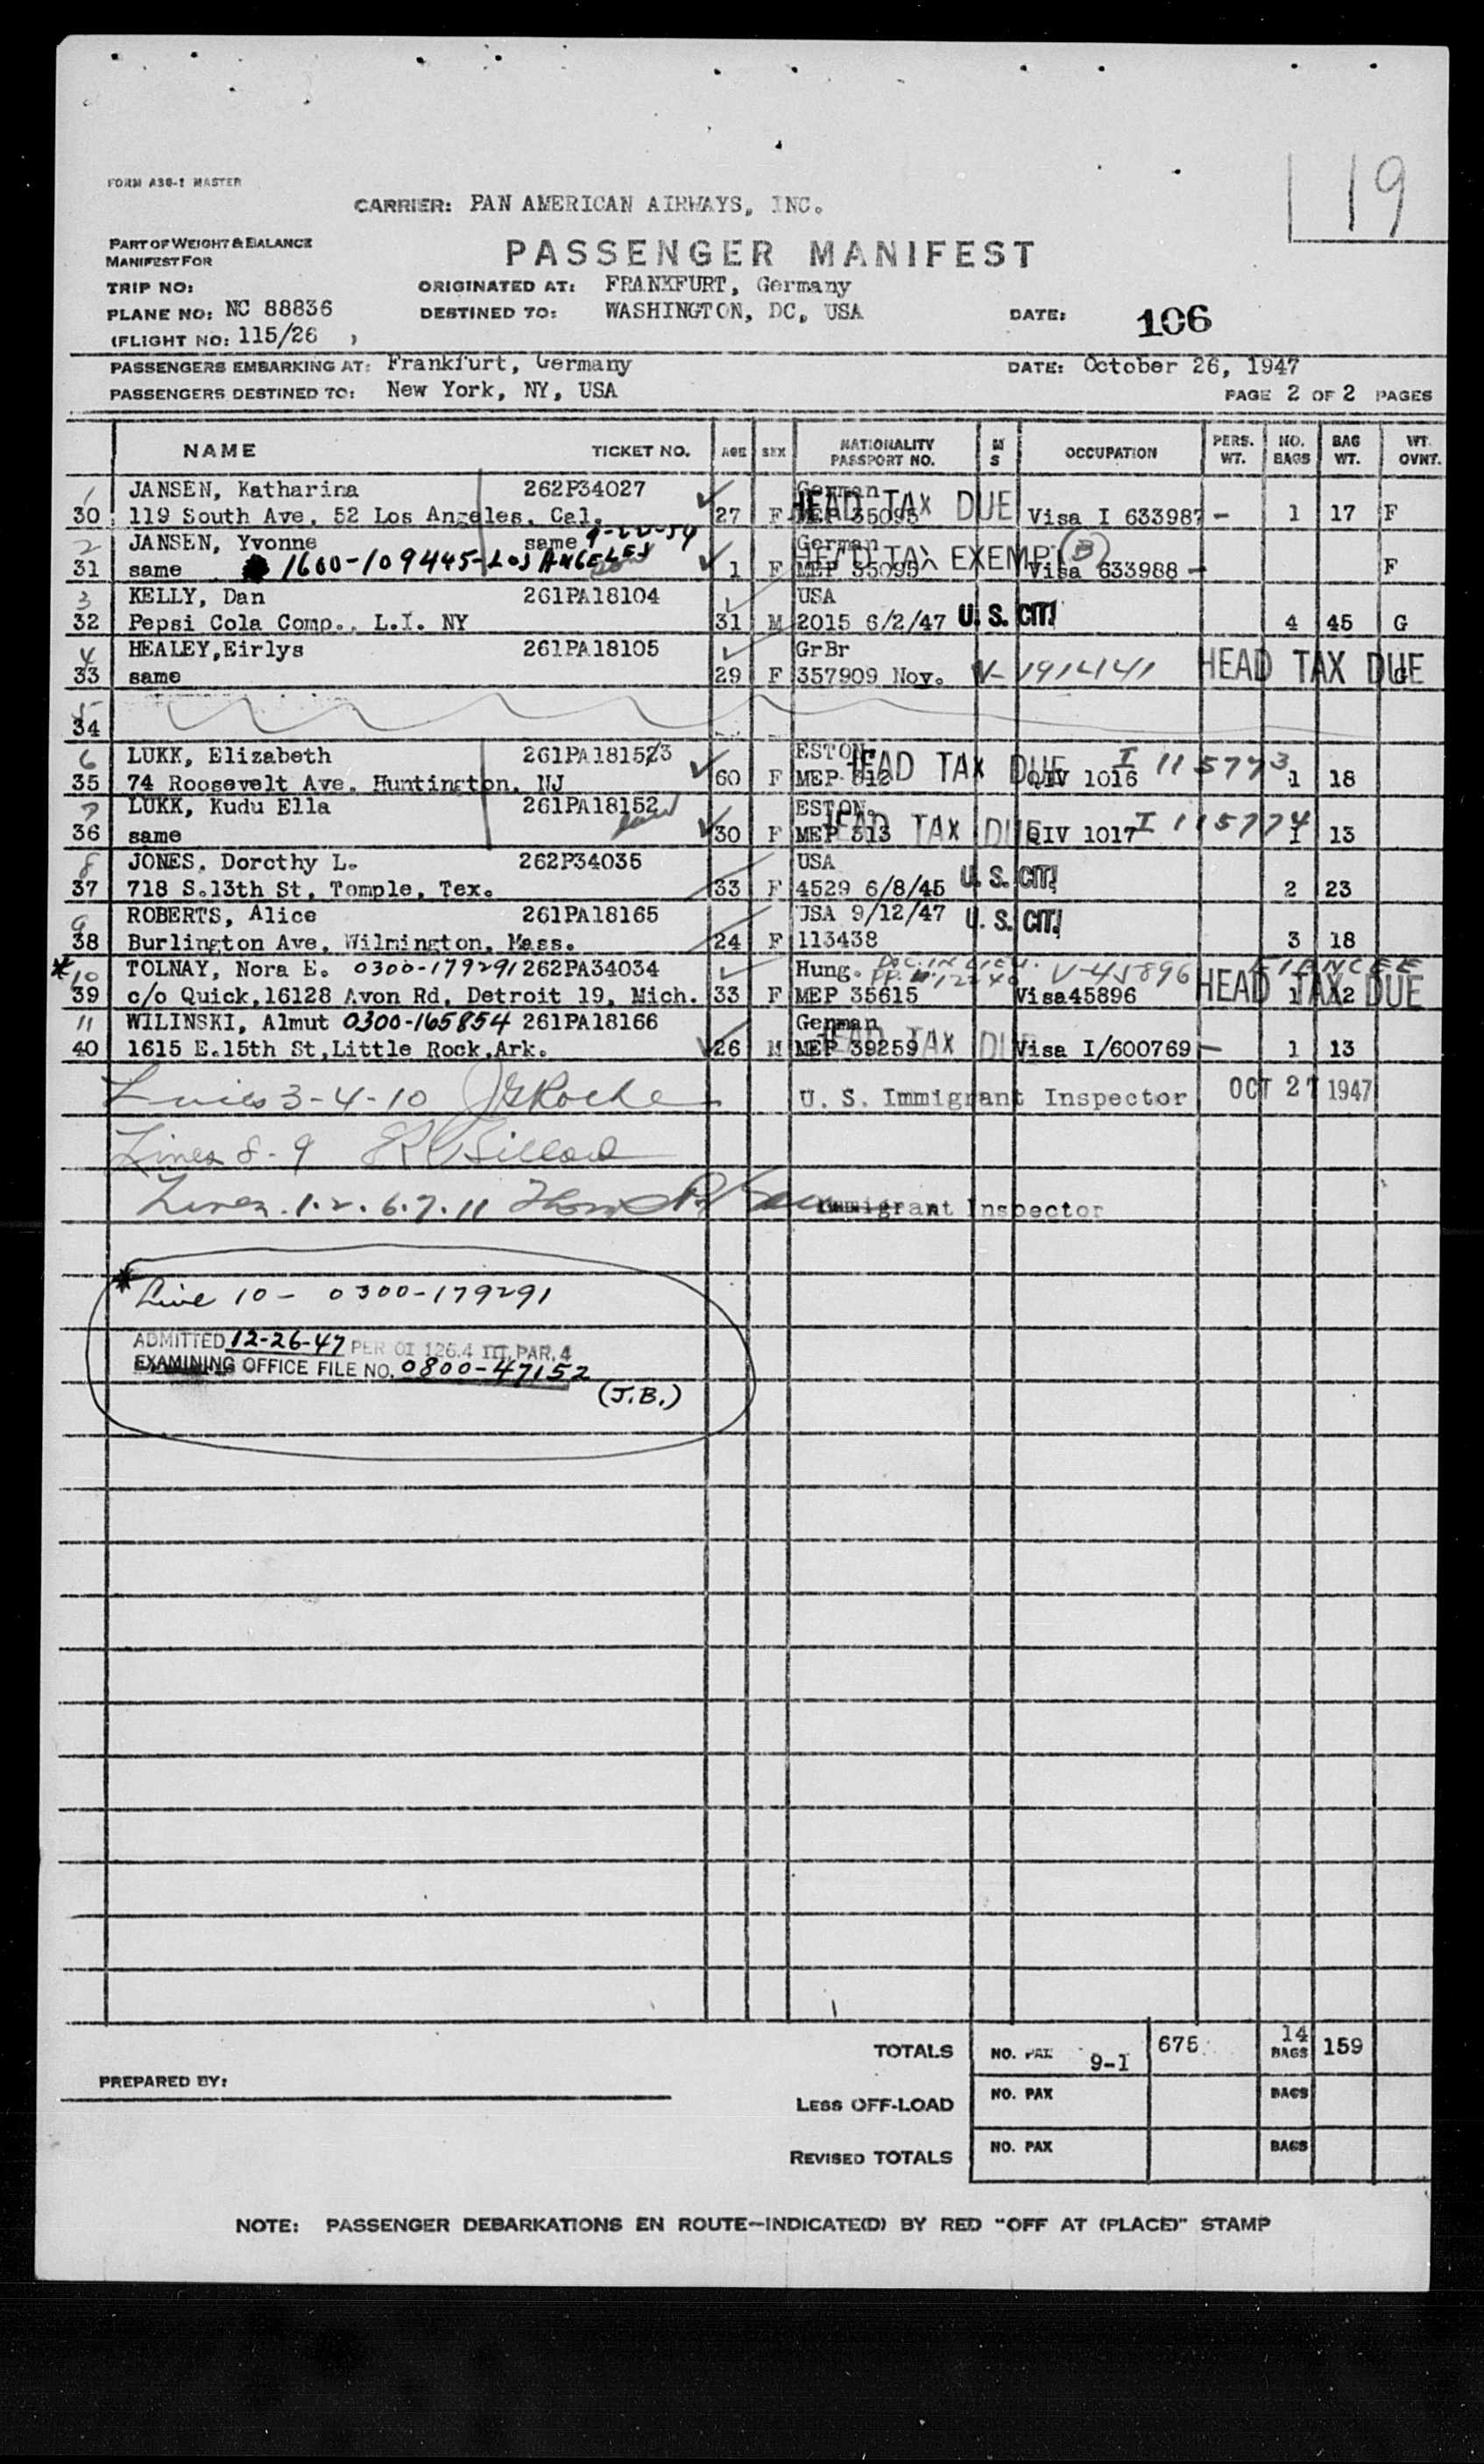 19
FORM A36-1 MASTER
CARRIER: PAN AMERICAN AIRWAYS, INC.
PART OF WEIGHT & BALANCE
MANIFEST FOR
PASSENGER MANIFEST
TRIP NO:
ORIGINATED AT: FRANKFURT, Germany
PLANE NO: NC 88836
DESTINED TO: WASHINGTON, DC, USA
DATE: 106
(FLIGHT NO: 115/26 )
PASSENGERS EMBARKING AT: Frankfurt, Germany DATE: October 26, 1947
PASSENGERS DESTINED TO: New York, NY, USA PAGE 2 OF 2 PAGES
NAME TICKET NO. AGE SEX NATIONALITY PASSPORT NO. M S OCCUPATION PERS. WT. NO. BAGS BAG WT. WT. OVNT.
1 JANSEN, Katharina 262P34027 German HEAD TAX DUE
30 119 South Ave, 52 Los Angeles, Cal. 27 F MEP 35095 Visa I 633987 - 1 17 F
2 JANSEN, Yvonne same 9-22-54 German HEAD TAX EXEMPT (B)
31 same 1600-109445-LOS ANGELES 1 F MEP 35095 Visa 633988 - F
3 KELLY, Dan 261PA18104 USA
32 Pepsi Cola Comp., L.I. NY 31 M 2015 6/2/47 U. S. CIT! 4 45 G
4 HEALEY,Eirlys 261PA18105 GrBr
33 same 29 F 357909 Nov. V-1914141 HEAD TAX DUE G
5
34
6 LUKK, Elizabeth 261PA18152/3 ESTON. HEAD TAX DUE I 115773
35 74 Roosevelt Ave, Huntington, NJ 60 F MEP 312 QIV 1016 1 18
7 LUKK, Kudu Ella 261PA18152 ESTON. HEAD TAX DUE I 115774
36 same 30 F MEP 313 QIV 1017 1 13
8 JONES, Dorothy L. 262P34035 USA
37 718 S.13th St, Temple, Tex. 33 F 4529 6/8/45 U. S. CIT! 2 23
9 ROBERTS, Alice 261PA18165 USA 9/12/47 U. S. CIT!
38 Burlington Ave, Wilmington, Mass. 24 F 113438 3 18
* 10 TOLNAY, Nora E. 0300-179291 262PA34034 Hung. DOC. IN LIEU. V-45896 FIANCEE
39 c/o Quick,16128 Avon Rd, Detroit 19, Mich. 33 F MEP 35615 Visa45896 HEAD TAX DUE 1 12
11 WILINSKI, Almut 0300-165854 261PA18166 German HEAD TAX DUE
40 1615 E.15th St,Little Rock,Ark. 26 M MEP 39259 Visa I/600769 - 1 13
Lines 3-4-10 JGRoche U. S. Immigrant Inspector OCT 27 1947
Lines 8-9
Lines 1.2.6.7.11 Immigrant Inspector
* Line 10 - 0300-179291
ADMITTED 12-26-47 PER OI 126.4 III, PAR. 4
EXAMINING OFFICE FILE NO. 0800-47152
(J.B.)
TOTALS NO. PAX 9-1 675 14 BAGS 159
PREPARED BY:
LESS OFF-LOAD NO. PAX BAGS
REVISED TOTALS NO. PAX BAGS
NOTE: PASSENGER DEBARKATIONS EN ROUTE—INDICATE(D) BY RED "OFF AT (PLACE)" STAMP